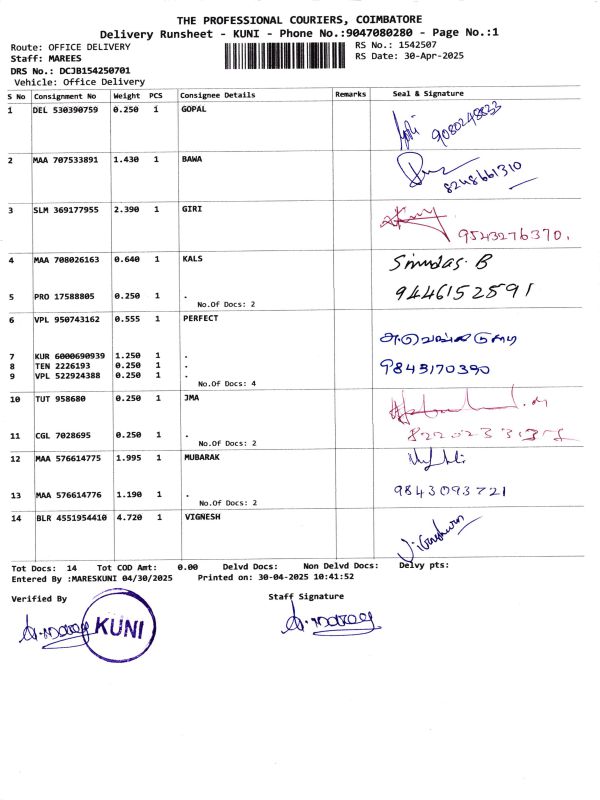 THE PROFESSIONAL COURIERS, COIMBATORE
Delivery Runsheet - KUNI - Phone No.:9047080280 - Page No.:1
Route: OFFICE DELIVERY
RS No.: 1542507
Staff: MAREES
RS Date: 30-Apr-2025
DRS No.: DCJB154250701
Vehicle: Office Delivery
S No Consignment No Weight PCS Consignee Details Remarks Seal & Signature
1 DEL 530390759 0.250 1 GOPAL
9080248833
2 MAA 707533891 1.430 1 BAWA
8248661310
3 SLM 369177955 2.390 1 GIRI
9543276370.
4 MAA 708026163 0.640 1 KALS
5 PRO 17588805 0.250 1 . 9446152591
No.Of Docs: 2
6 VPL 950743162 0.555 1 PERFECT
7 KUR 6000690939 1.250 1 .
8 TEN 2226193 0.250 1 . 9843170390
9 VPL 522924388 0.250 1 .
No.Of Docs: 4
10 TUT 958680 0.250 1 JMA
11 CGL 7028695 0.250 1 .
No.Of Docs: 2
12 MAA 576614775 1.995 1 MUBARAK
13 MAA 576614776 1.190 1 . 9843093721
No.Of Docs: 2
14 BLR 4551954410 4.720 1 VIGNESH
Tot Docs: 14 Tot COD Amt: 0.00 Delvd Docs: Non Delvd Docs: Delvy pts:
Entered By :MARESKUNI 04/30/2025 Printed on: 30-04-2025 10:41:52
Verified By
Staff Signature
KUNI